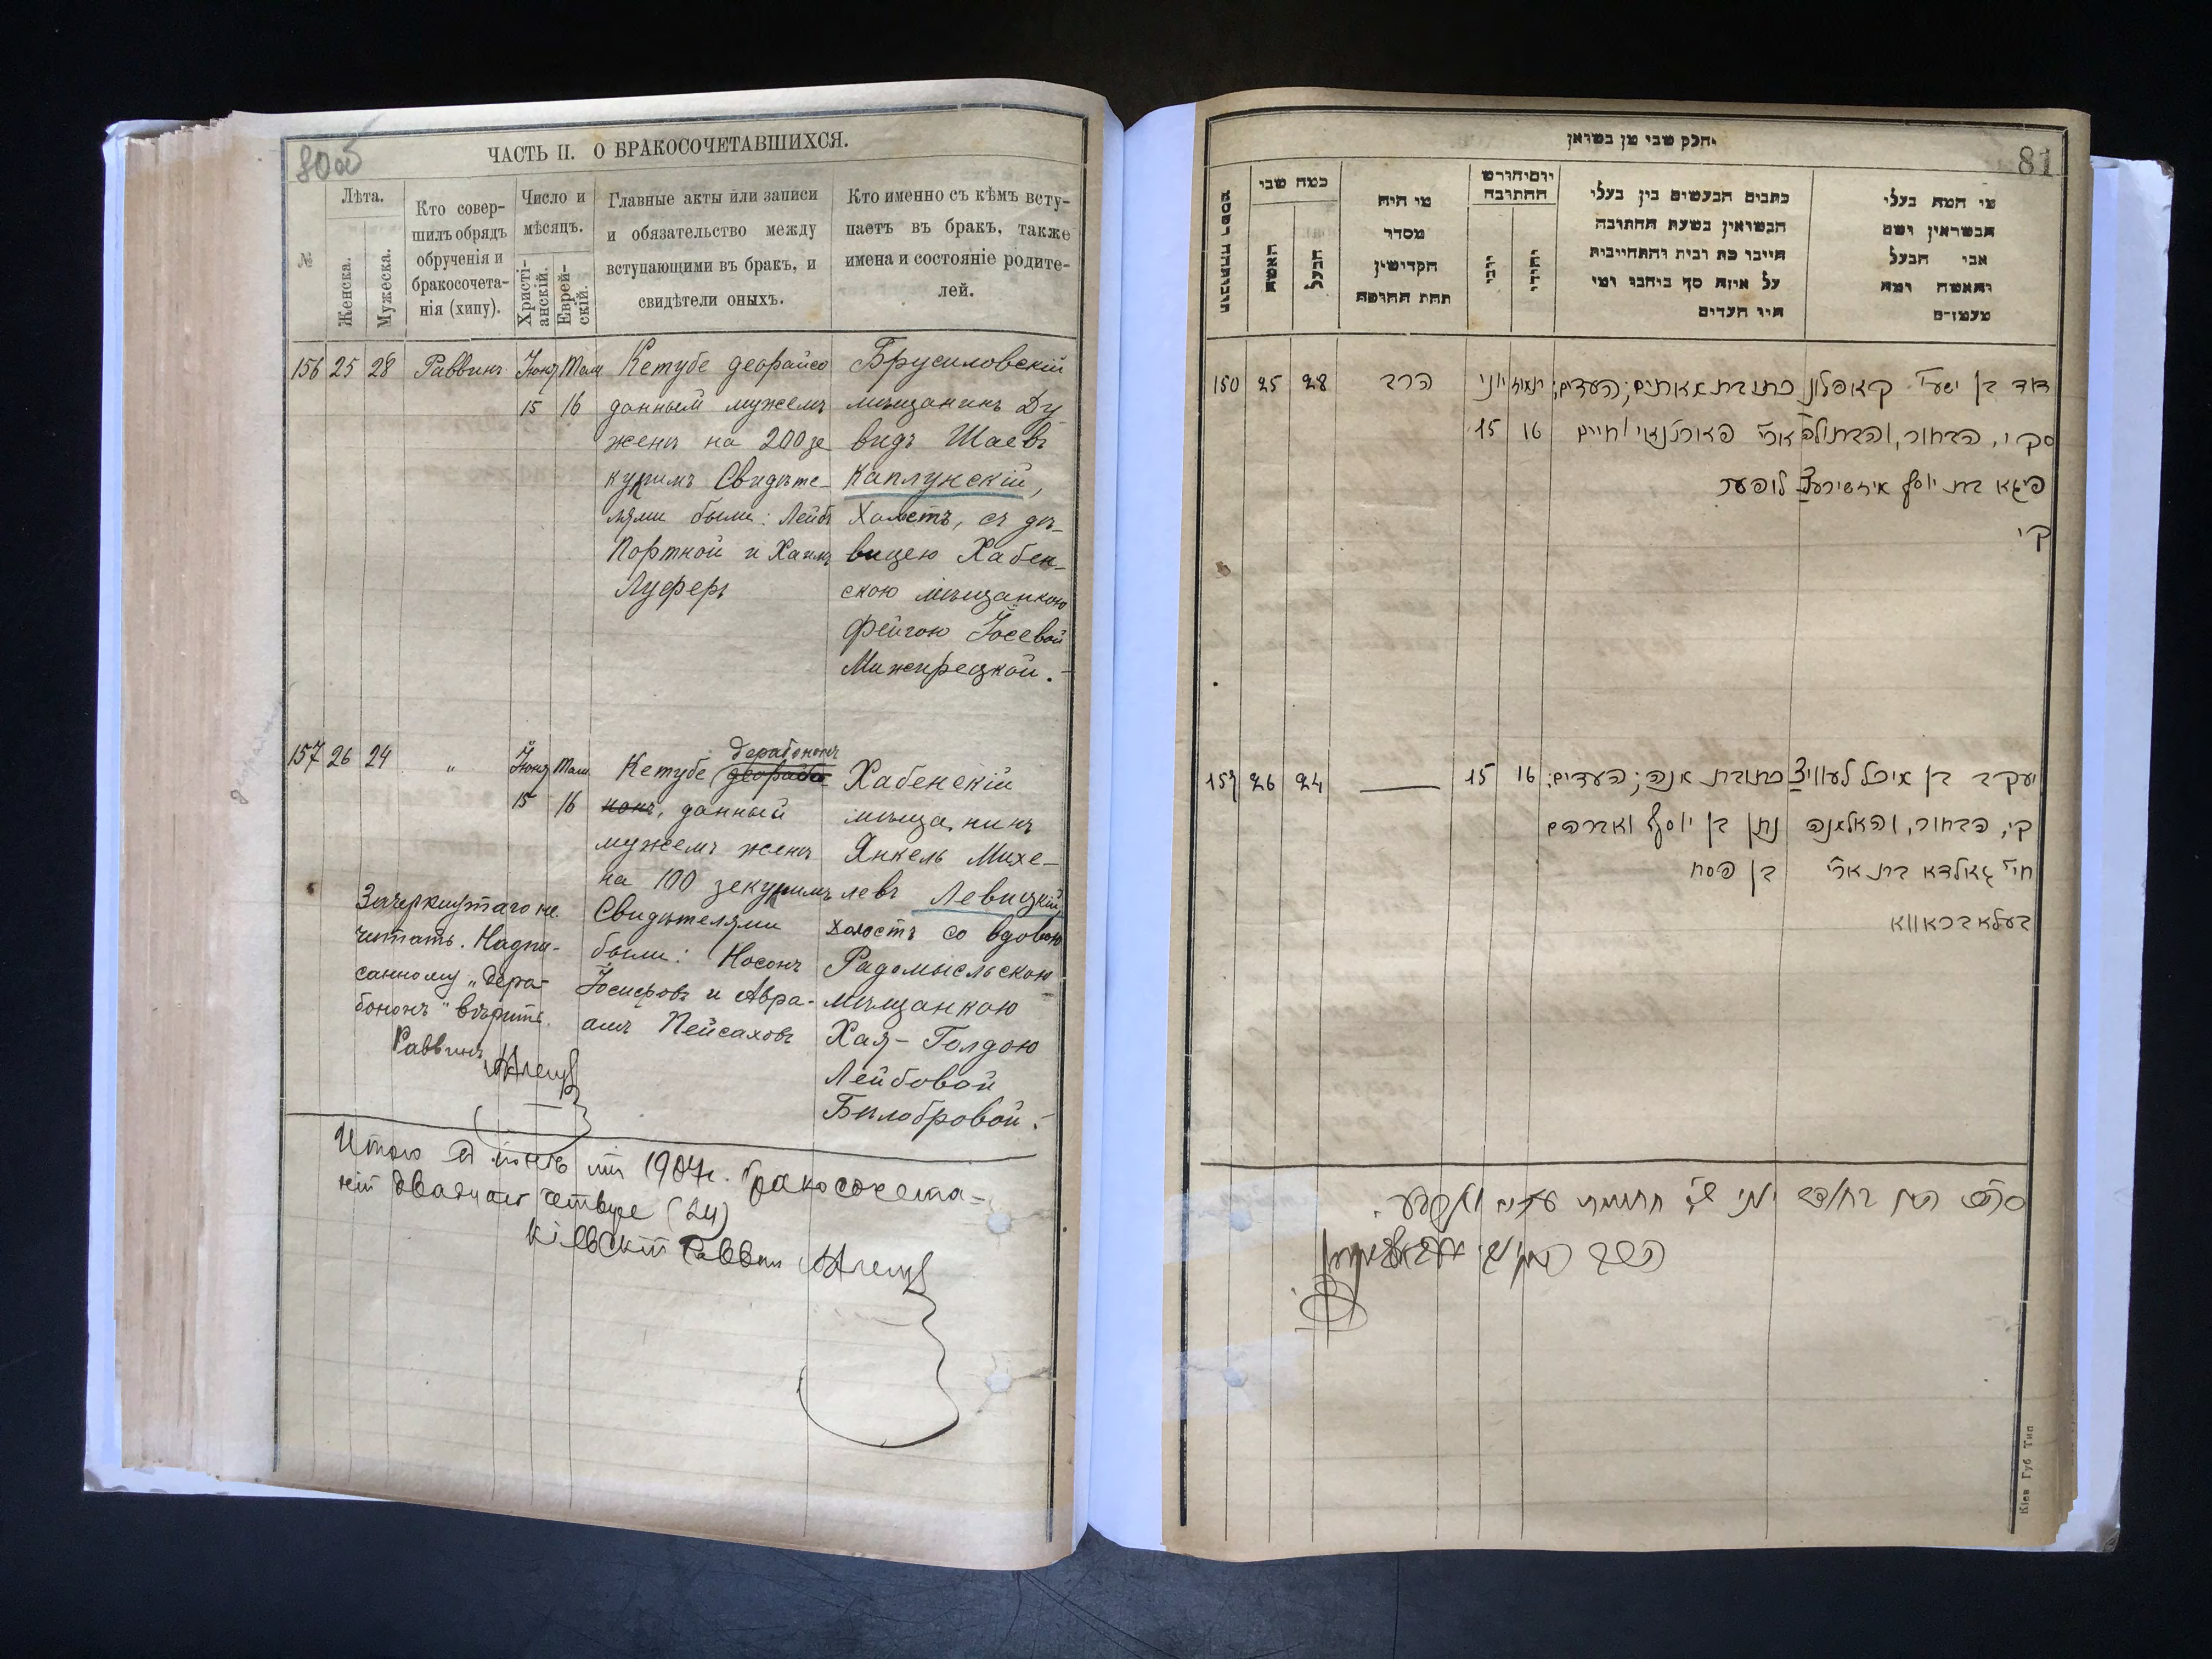 80об
ЧАСТЬ II. О БРАКОСОЧЕТАВШИХСЯ.
№
Лѣта.
Женска.
Мужеска.
Кто совер-
шилъ обрядъ
обрученія и
бракосочета-
нія (хипу).
Число и
мѣсяцъ.
Христі-
анскій.
Еврей-
скій.
Главные акты или записи
и обязательство между
вступающими въ бракъ, и
свидѣтели оныхъ.
Кто именно съ кѣмъ всту-
паетъ въ бракъ, также
имена и состояніе родите-
лей.
156 25 28 Раввинъ Іюня
15
16
Кетубе деорайсо
данный мужемъ
женѣ на 200 зе
куримъ Свидѣте-
лями были: Лейбъ
Портной и Хаимъ
Луферъ
Брусиловскій
мѣщанинъ Ду
видъ Шаевъ
Каплунскій,
Холостъ, съ дѣ-
вицею Хабен-
скою мѣщанкою
Фейгою Іосевой
Мижирецкой.-
157 26 24 " Іюня
15
16
Кетубе деорабо
дерабононъ
нонъ, данный
мужемъ женѣ
на 100 зекуримъ
Свидѣтелями
были: Носонъ
Іосифовъ и Авра-
амъ Пейсаховъ
Хабенскій
мѣщанинъ
Янкель Михе-
левъ Левицкій,
холостъ со вдовою
Радомысльскою
мѣщанкою
Хая-Голдою
Лейбовой
Билобровой.-
Зачеркнутаго не
читать. Надпи-
санному „дера-
бононъ" вѣрить.
Раввинъ
Итого въ 1904г. бракосочета-
ній двадцать четыре (24)
Кіевскій Раввин
81
חלק שני מן נשואין
כמה שני
האשה
הבעל
מי היה
מסדר
הקדישין
תחת החופה
יום וחודש
החתונה
כתבים הנעשים בין בעלי
הנשואין בשעת החתונה
היינו כתובות והתחייבות
על איזה סך ניתנו ומי
היו העדים
מי המה בעלי
הנשואין ושם
אבי הבעל
והאשה ומה
מעמדם
150 25 28 הרב יוני תמוז
15 16
דוד בן ישעי' קאפלון
ס"ק י, הבחור, והבתולה
פיגא בת יוסף
ק"י
כתובת מאתים; העדים:
ארי' פאורטנאי וחיים
לופער
157 26 24 —— 15 16
יעקב בן איכל לעוויצ
ק"י, הבחור, והאלמנה
חי' גאלדא בת ארי'
בעלאבראווא
כתובת מנה; העדים:
נתן בן יוסף ואברהם
בן פסח
Кіев Губ Тип